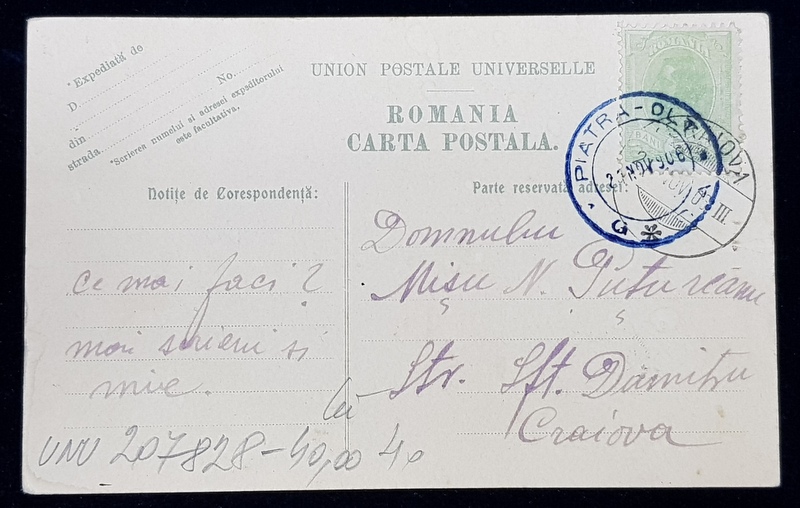 Expediată de
D.
No.
din
strada.
*Scrierea numelui si adresei expeditorului
este facultativa.
UNION POSTALE UNIVERSELLE
ROMANIA
CARTA POSTALA.
ROMANIA
BANI
PIATRA-OLT
27 NOV 906
CRAIOVA
III
Notițe de Corespondență:
Parte reservată adresei:
ce mai faci?
mai scrieni si
mie.
Domnului
Mișu N. Puțureanu
Str. Sft. Dumitru
Craiova
UNU 207828-40,00 40
lei